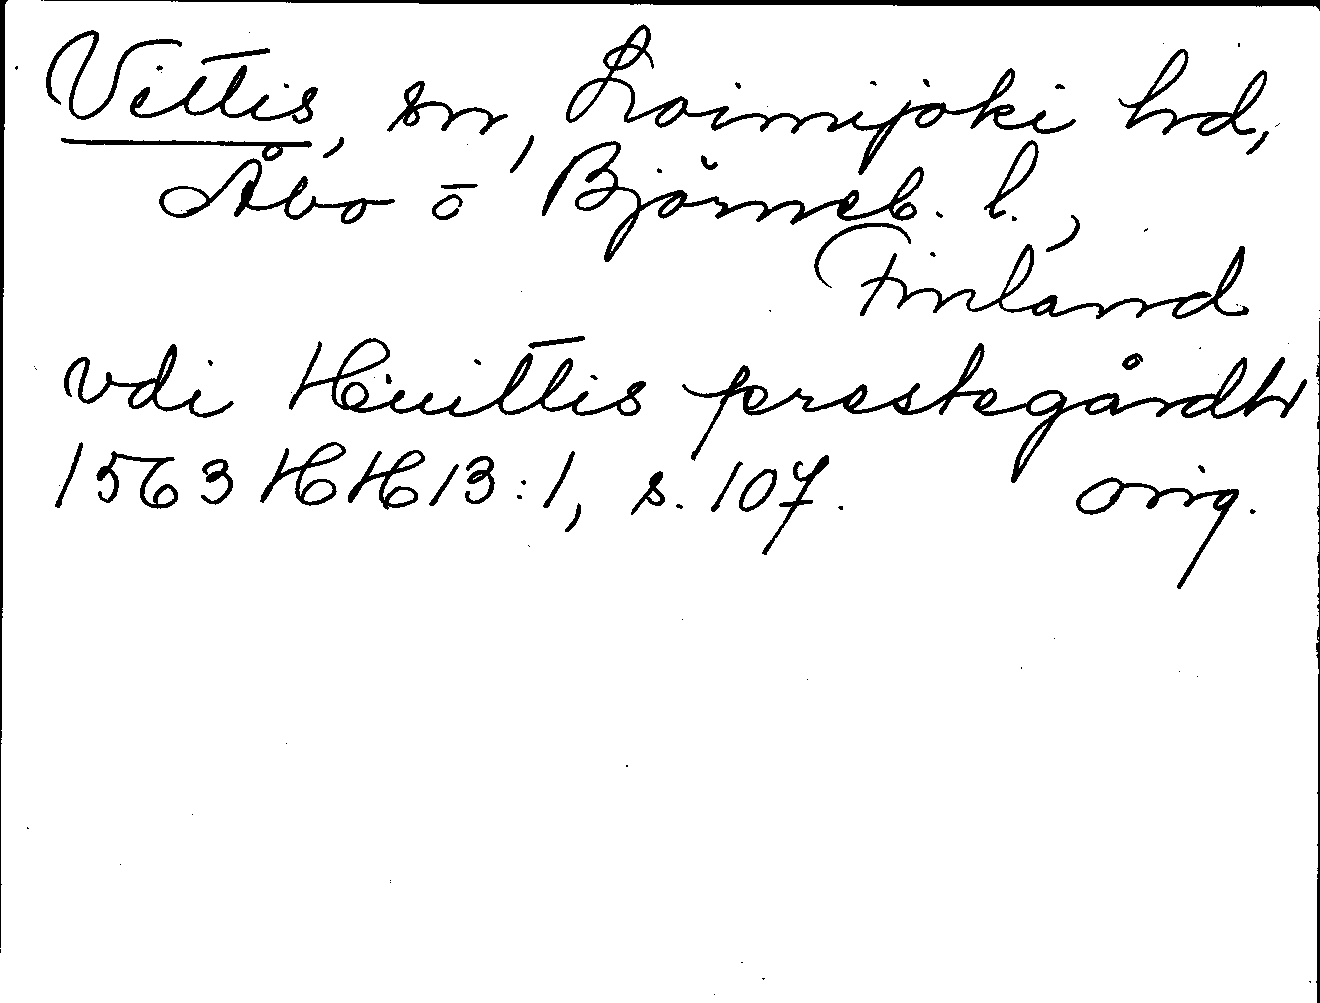 Vittis, sn, Loimijoki hd,
Åbo o Björneb. l.,
Finland
vdi Huittis prestegårdh
1563 HH 13:1, s. 107. orig.